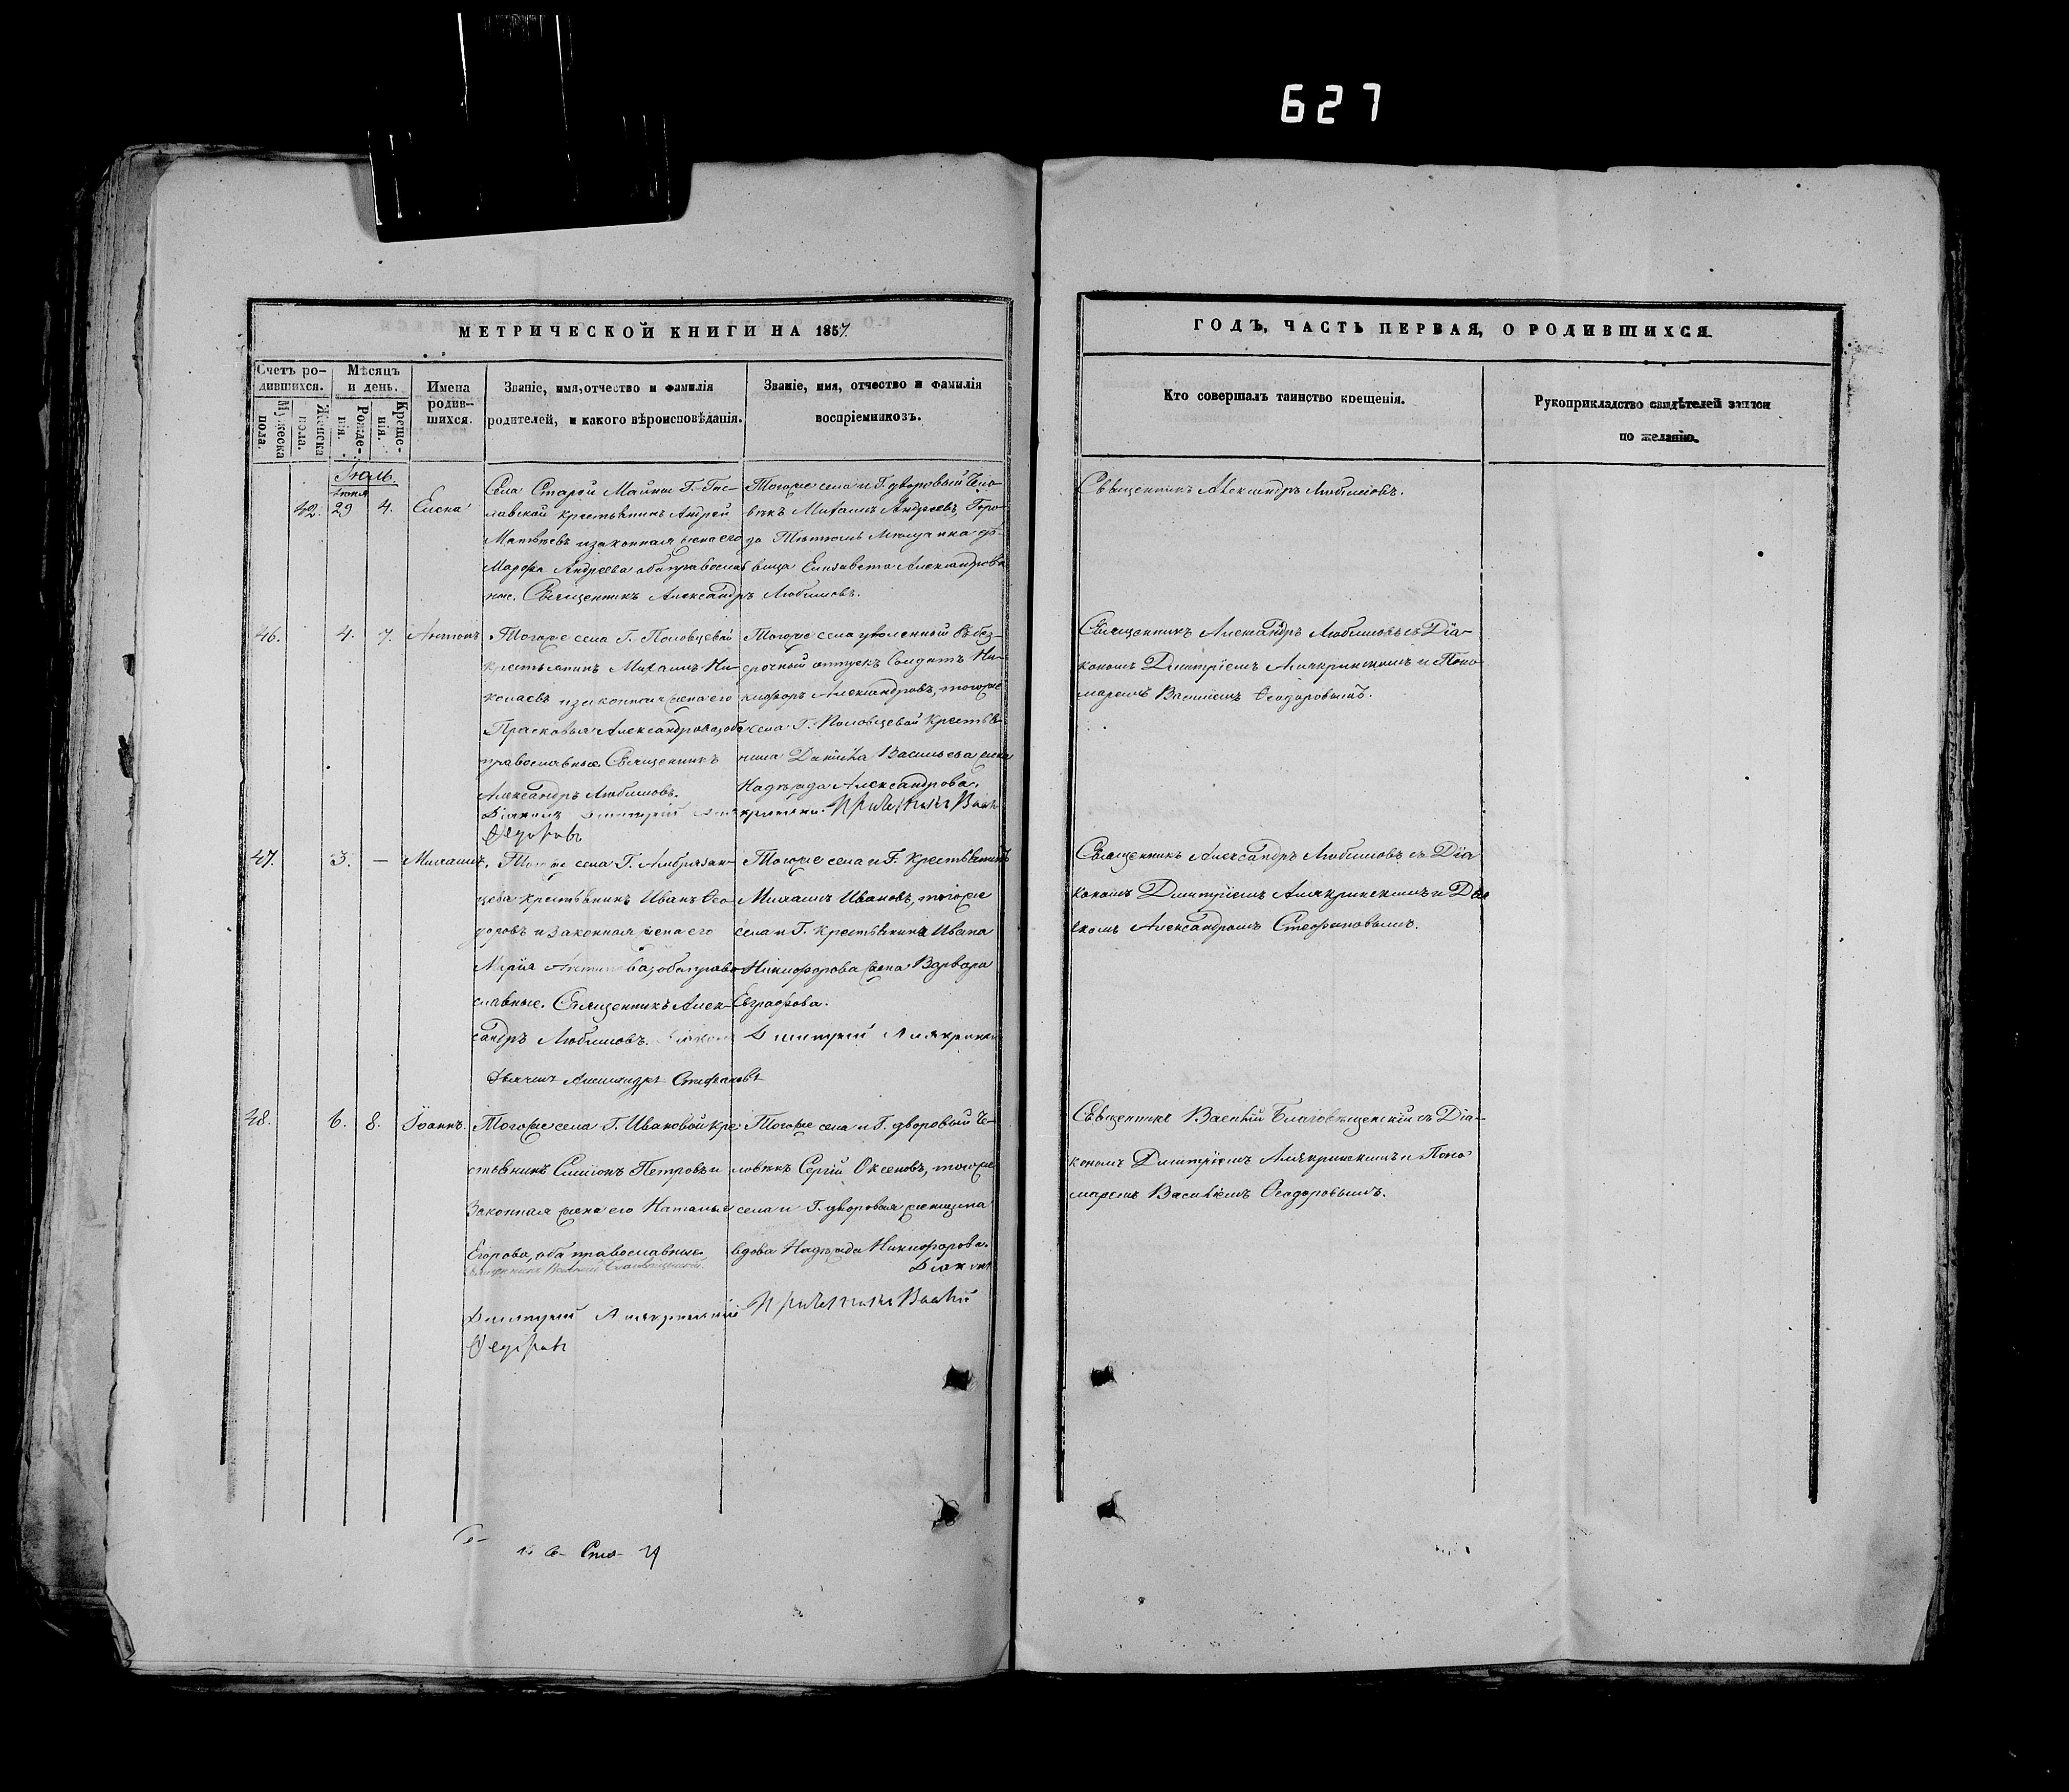 627
МЕТРИЧЕСКОЙ КНИГИ НА 1857.
ГОДЪ, ЧАСТЬ ПЕРВАЯ, О РОДИВШИХСЯ.
Счетъ ро-
дившихся.
Мѣсяцъ
и день.
Мужеска
пола.
Женска
пола.
Рожде-
нія.
Креще-
нія.
Имена
родив-
шихся.
Званіе, имя, отчество и фамилія
родителей, и какого вѣроисповѣданія.
Званіе, имя, отчество и фамилія
воспріемниковъ.
Кто совершалъ таинство крещенія.
Рукоприкладство свидѣтелей записи
по желанію.
Іюль.
Іюня
42. 29 4. Елена
Села Старой Майны Г.
крестьянинъ Андрей
Матвѣевъ и законная жена его
Марѳа Андреева оба православ
ные. Священникъ Александръ Любимовъ.
Тогоже села и Г. дворовый чело-
вѣкъ Михаилъ Андреевъ,
вица Елизавета Александрова
Священникъ Александръ Любимовъ.
46. 4. 7. Антонъ.
Тогоже села Г. Половцевой
крестьянинъ Михаилъ Ни-
колаевъ и законная жена его
Прасковья Александрова, оба
православные. Священникъ
Александръ Любимовъ.
Тогоже села уволенный въ без-
срочный отпускъ Солдатъ Ни-
кифоръ Александровъ, тогоже
села Г. Половцевой крестья-
нина Даніила Васильева жена
Надежда Александрова.
Ѳедоровъ
Священникъ Александръ Любимовъ съ Діа-
кономъ Дмитріемъ Алякринскимъ и Поно
маремъ Василіемъ Ѳеодоровымъ.
47. 3. — Михаилъ.
Тогоже села Г.
цева крестьянинъ Иванъ Ѳео
доровъ и законная жена его
Марія оба право
славные. Священникъ Алек-
сандръ Любимовъ.
Тогоже села и Г. крестьянинъ
Михаилъ Ивановъ, тогоже
села и Г. крестьянина Ивана
Никифорова жена Варвара
Евграфова.
Димитрій Алякринскій
Дьячекъ Александръ Стефановъ
Священникъ Александръ Любимовъ съ Діа
кономъ Дмитріемъ Алякринскимъ и Дья
чкомъ Александромъ Стефановымъ.
48. 6. 8. Іоаннъ.
Тогоже села Г. Ивановой кре
стьянинъ Симіонъ Петровъ и
законная жена его Наталья
Егорова, оба православные,
Священникъ Василій Благовѣщенскій.
Тогоже села и Г. дворовый че-
ловѣкъ Сергій Оксеновъ, тогоже
села и Г. дворовая женщина
вдова Надежда Никифорова.
Діаконъ
Димитрій Алякринскій Василій
Ѳедоровъ
Священникъ Василій Благовѣщенскій съ Діа-
кономъ Дмитріемъ Алякринскимъ и Поно
маремъ Василіемъ Ѳеодоровымъ.